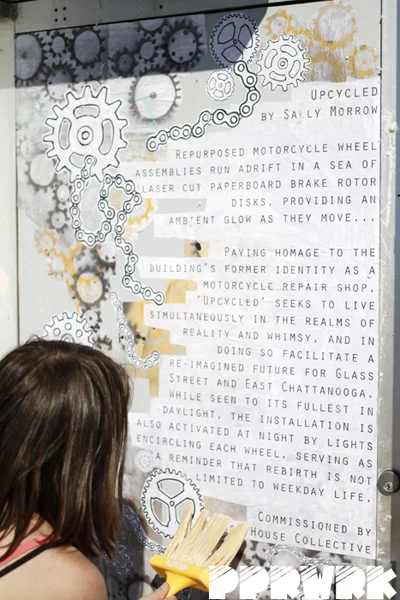 Upcycled
by Sally Morrow
Repurposed motorcycle wheel
assemblies run adrift in a sea of
laser cut paperboard brake rotor
disks, providing an
ambient glow as they move...
Paying homage to the
building's former identity as a
motorcycle repair shop,
'Upcycled' seeks to live
simultaneously in the realms of
reality and whimsy, and in
doing so facilitate a
re-imagined future for Glass
Street and East Chattanooga.
While seen to its fullest in
daylight, the installation is
also activated at night by lights
encircling each wheel, serving as
a reminder that rebirth is not
limited to weekday life.
Commissioned by
House Collective
PPRWRK